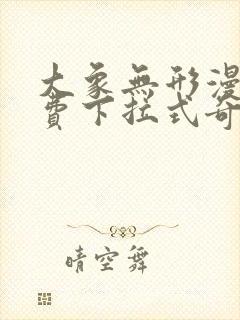 大象無形漫
費下拉式奇
晴空舞